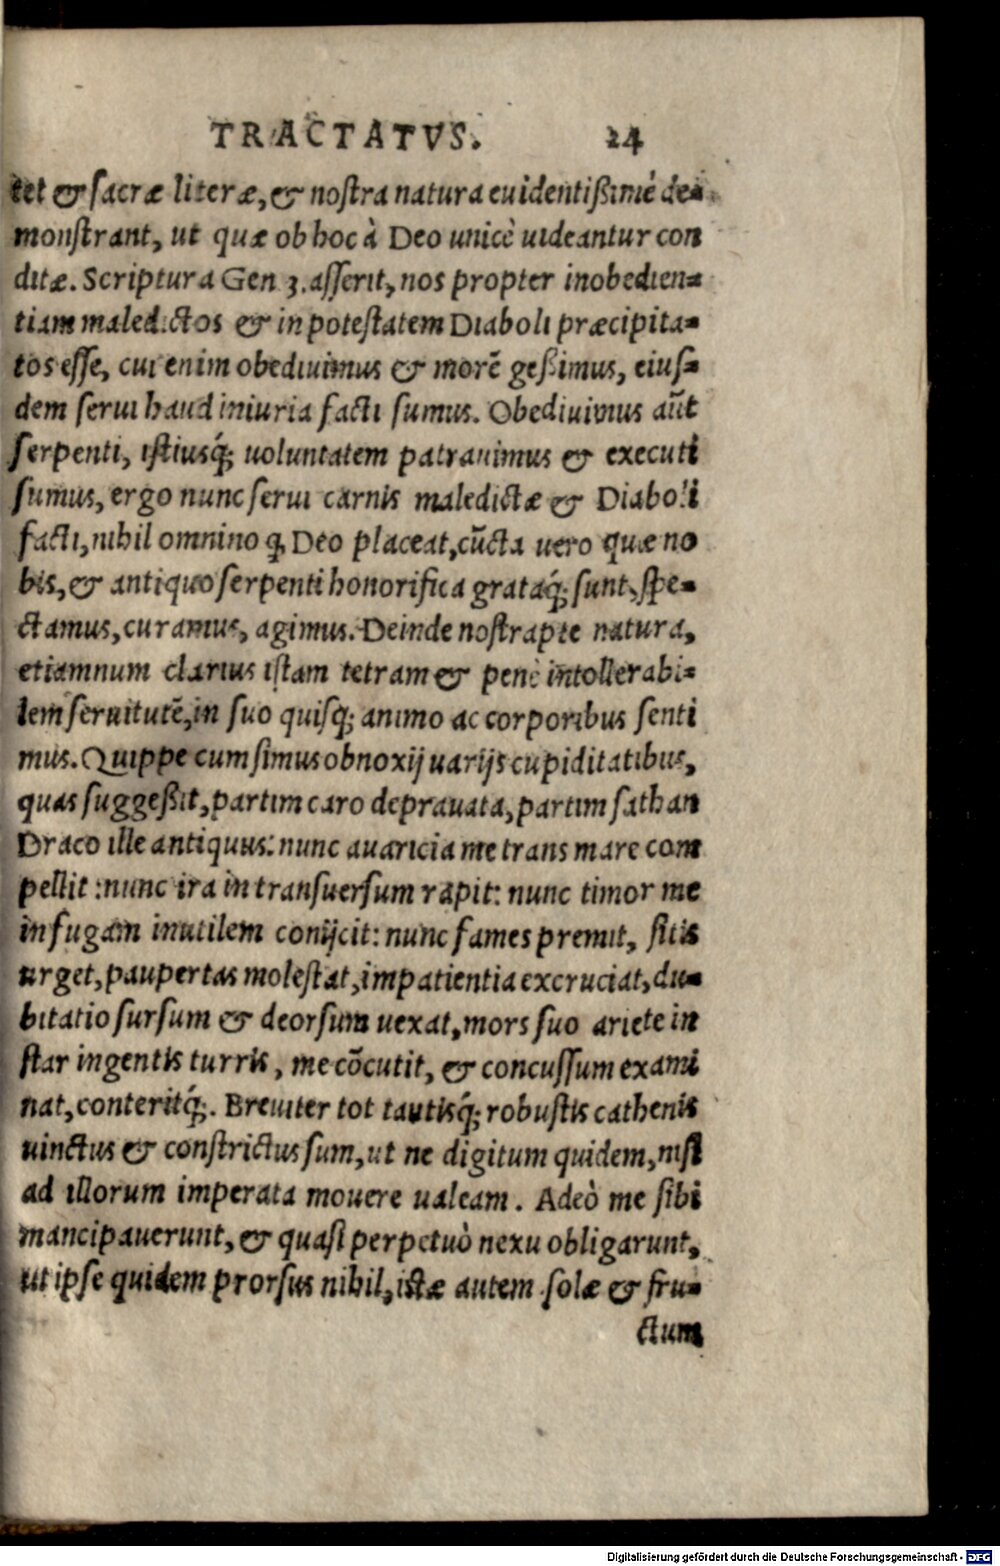 TRACTATVS. 24
tet & sacræ literæ, & nostra natura euidentißimè de-
monstrant, ut quæ ob hoc à Deo unicè uideantur con
ditæ. Scriptura Gen 3. asserit, nos propter inobedien-
tiam maledictos & in potestatem Diaboli præcipita-
tos esse, cui enim obediuimus & morē geßimus, eius-
dem serui haud iniuria facti sumus. Obediuimus aūt
serpenti, istiusq́; uoluntatem patrauimus & executi
sumus, ergo nunc serui carnis maledictæ & Diaboli
facti, nihil omnino q̨ Deo placeat, cūcta uero quæ no
bis, & antiquo serpenti honorifica grataq́; sunt, spe-
ctamus, curamus, agimus. Deinde nostrapte natura,
etiamnum clarius istam tetram & penè intollerabi-
lem seruitutē, in suo quisq; animo ac corporibus senti
mus. Quippe cum simus obnoxij uarijs cupiditatibus,
quas suggeßit, partim caro deprauata, partim sathan
Draco ille antiquus: nunc auaricia me trans mare com
pellit: nunc ira in transuersum rapit: nunc timor me
in fugam inutilem conijcit: nunc fames premit, sitis
urget, paupertas molestat, impatientia excruciat, du-
bitatio sursum & deorsum uexat, mors suo ariete in
star ingentis turris, me cōcutit, & concussum exami
nat, conteritq́;. Breuiter tot tautisq́; robustis cathenis
uinctus & constrictus sum, ut ne digitum quidem, nisi
ad illorum imperata mouere ualeam. Adeò me sibi
mancipauerunt, & quasi perpetuò nexu obligarunt,
ut ipse quidem prorsus nihil, istæ autem solæ & fru-
ctum
Digitalisierung gefördert durch die Deutsche Forschungsgemeinschaft - DFG